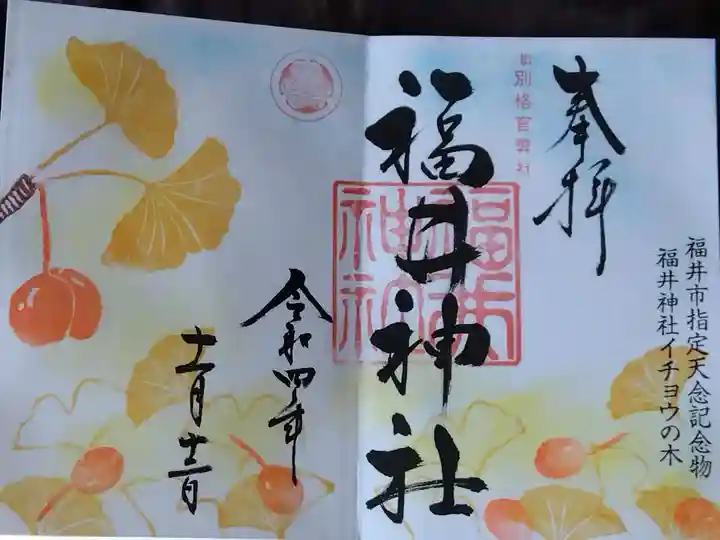 福井市指定天念記念物
福井神社イチョウの木
奉拝
旧別格官弊社
福井神社
福井神社
令和四年
十一月十三日